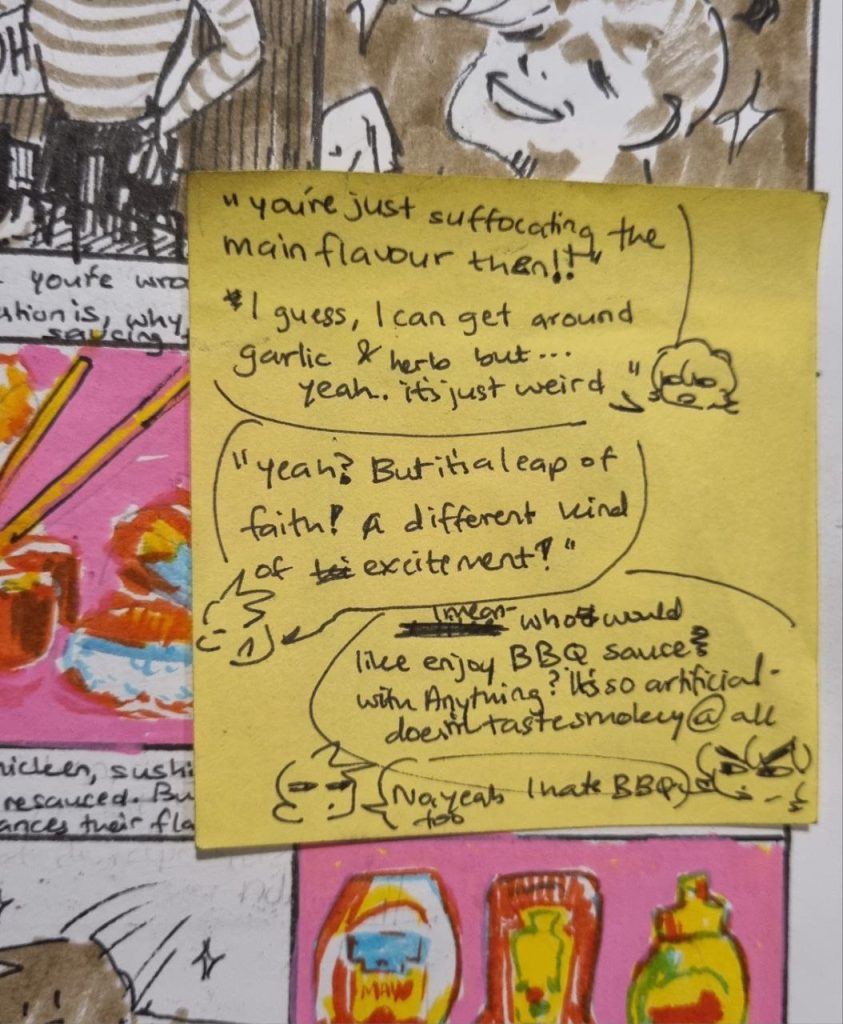 OH
you're wro
ation is, why
saucing
"you're just suffocating the
main flavour then!!"
"I guess, I can get around
garlic & herb but...
yeah. it's just weird"
"yeah? But it's a leap of
faith! A different kind
of excitement!"
I mean who would
like enjoy BBQ sauce?
with Anything? It's so artificial-
doesn't taste smokey @ all
No yeah I hate BBQ
too
hicken, sushi
resauced. Bu
ances their fla
MAYO